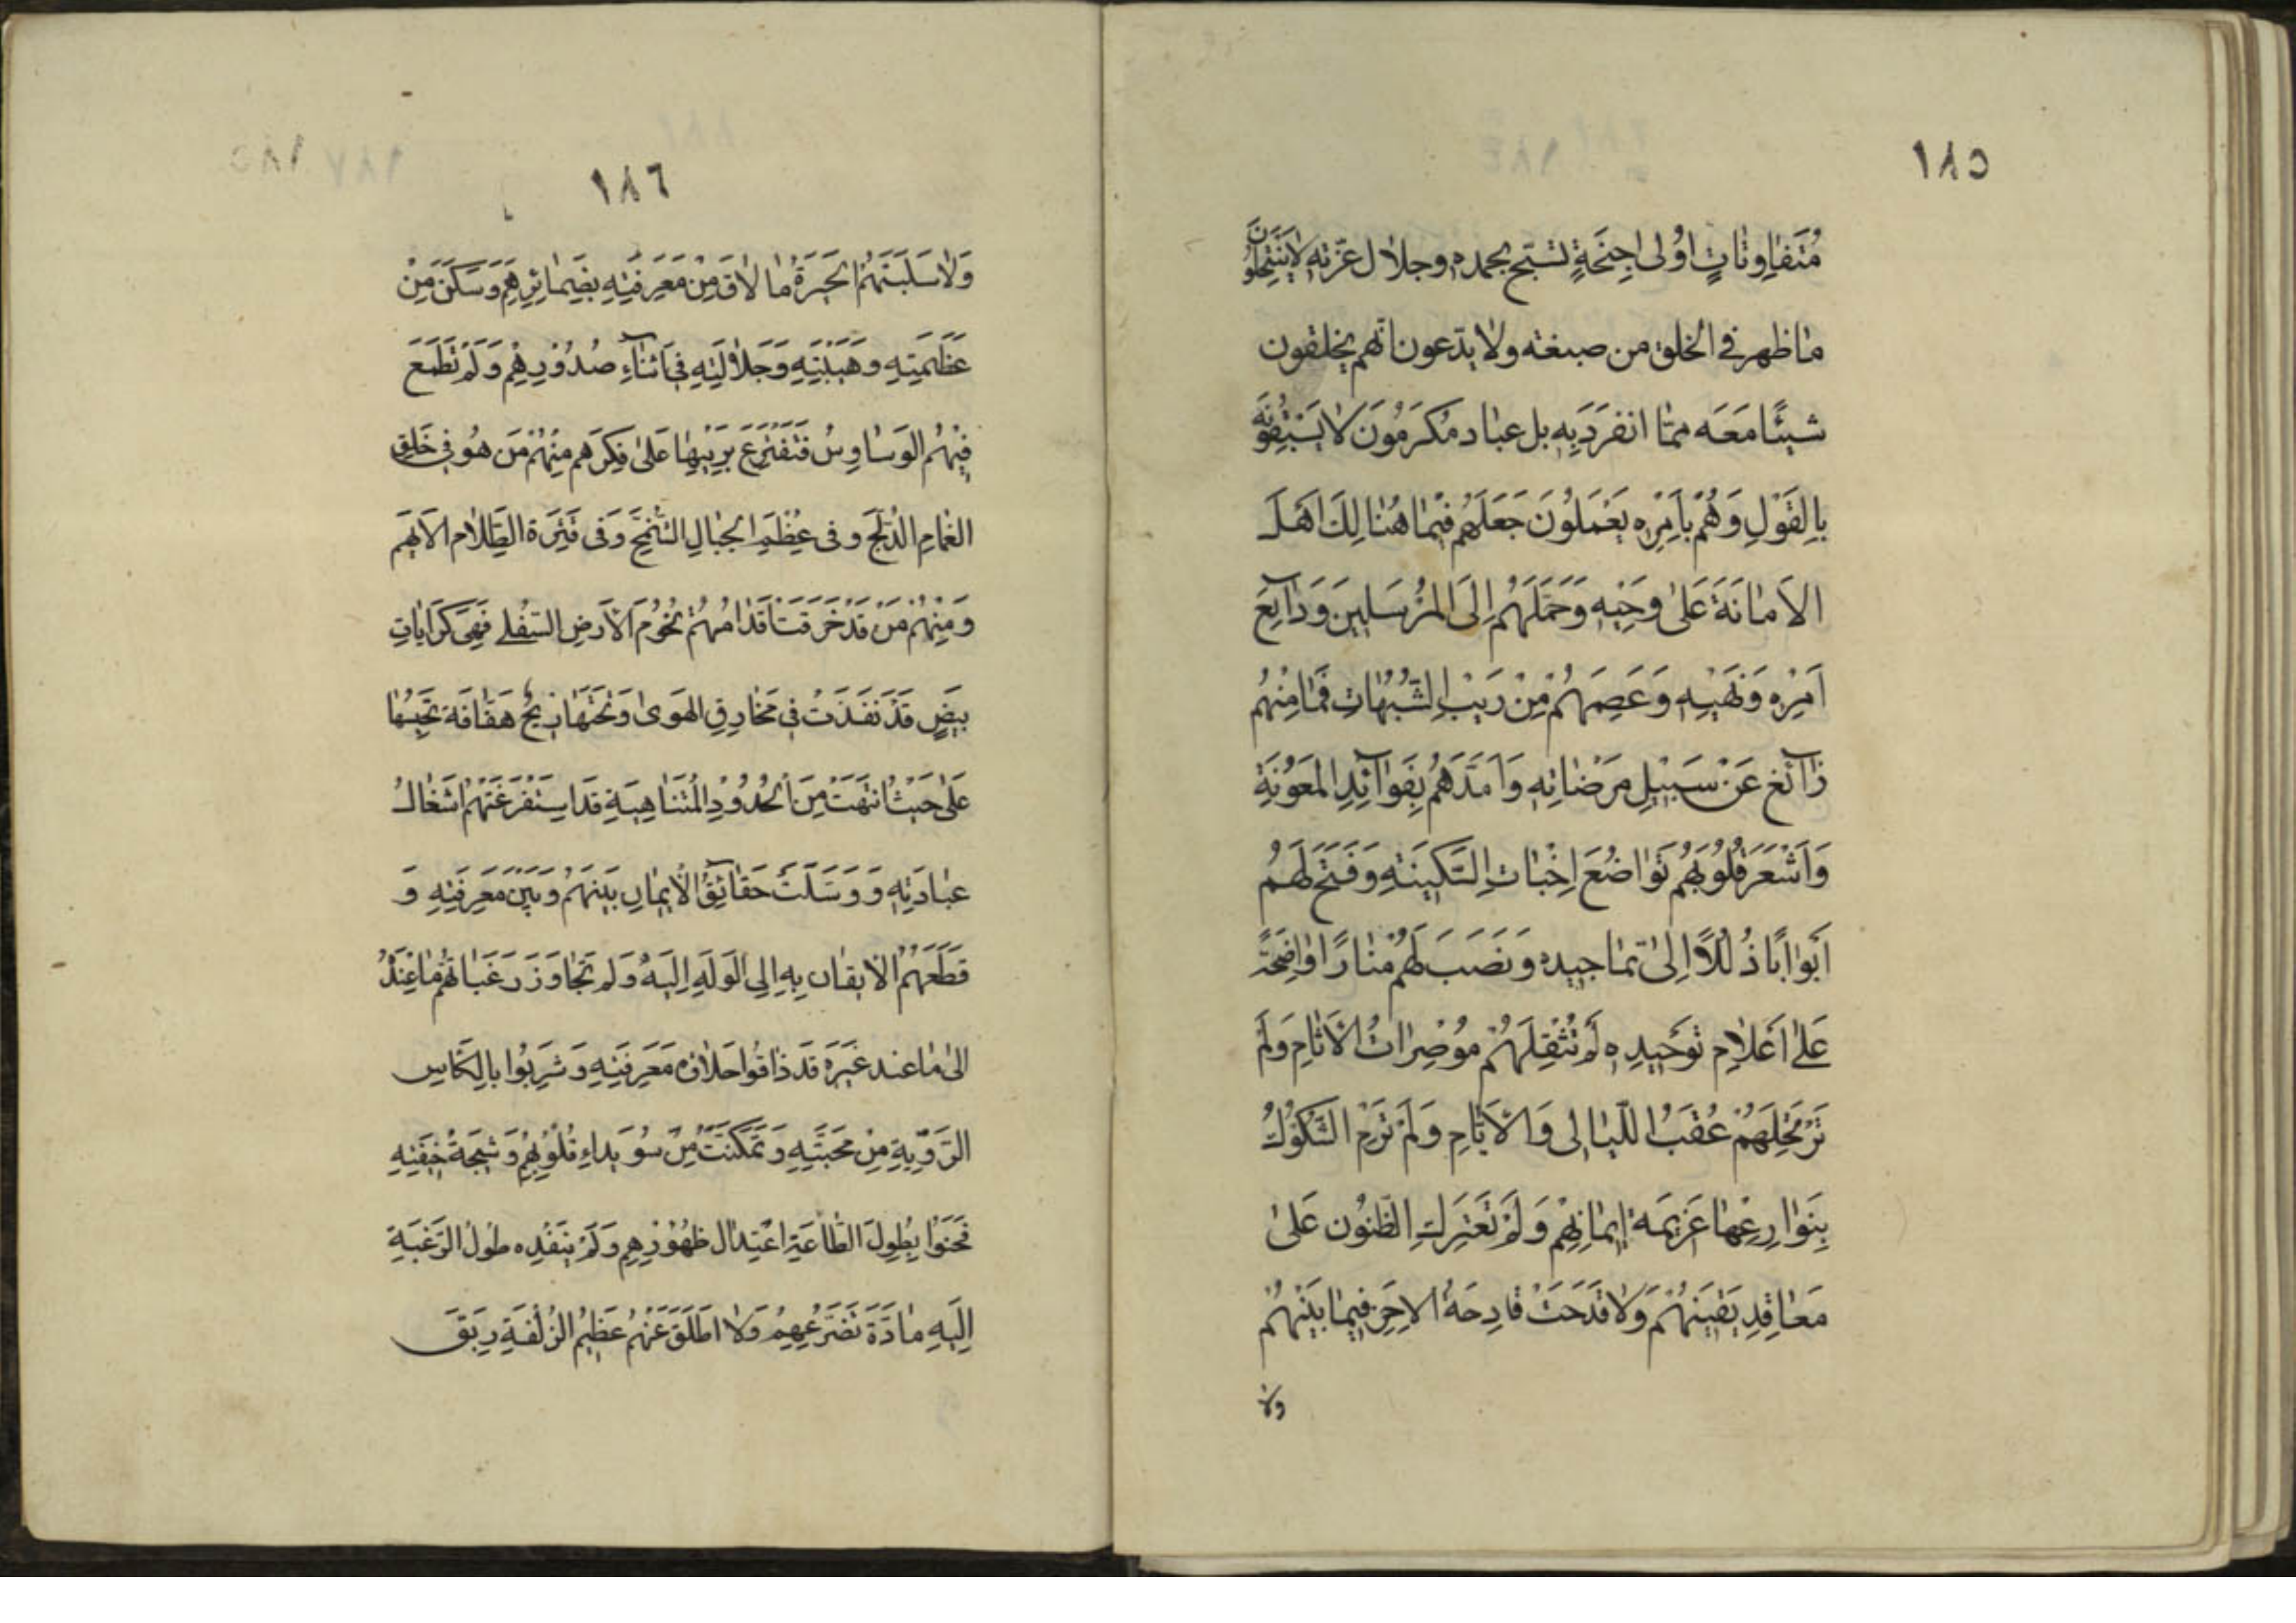 ١٨٥
مُتَفاوِتاتٍ اوُلى اجنِحَةٍ تسَبّح بحمده وجلال عزّته لا يَنتَحِلُونَ
ماظهر في الخلق من صبغته ولا يدّعون انّهم يخلقون
شيئًا مَعَه ممّا انفرَدَ بِه بل عباد مُكرَمُونَ لا يَسْبِقُونَه
بِالقَوْلِ وَهُمْ بِاَمرِه يَعْمَلُونَ جَعَلَهُم فيْما هُنالِكَ اَهْلَ
الاَمانَةِ عَلى وحيِه وَحَمَّلَهُمْ اِلَى المُرْسَلينَ وَدايِعَ
اَمرِه وَنَهْيِه وَعَصِمَهُمْ مِنْ رَيْبِ الشُّبُهاتِ فَما مِنْهُم
زائغ عَنْ سَبيْلِ مَرْضاتِه وَاَمَدَّهُمْ بِفَوائِدِ المَعُونَةِ
وَاَشْعَرَ قُلُوبَهُم تَواضُعَ اِخْباتِ السَّكينَةِ وَفَتَحَ لَهُم
اَبْوابًا ذُلُلاً اِلى تماجيده وَنَصَبَ لَهُمْ مَنارًا واضِحَةً
عَلى اَعْلامِ تَوحيدِه لَم تُثْقِلهُمْ مُوْصِراتُ الاثامِ وَلَم
تَرْتَحِلهُمْ عُقَبُ اللّيالى وَالاَيّامِ وَلَمْ تَرْمِ الشُّكُوْكُ
بِنَوازِعِها عَزيمَة ايمانِهِمْ وَلَمْ تَعْتَرِكِ الظّنُون عَلى
مَعاقِدِ يَقينِهُمْ وَلا قَدَحَتْ قادِحَةُ الاِحَنِ فيما بَيْنَهُمْ
ولا
١٨٦
وَلا سَلَبَتْهُمُ الحَيرَةُ ما لاقَ مِنْ مَعرِفَتِهِ بِضَمائِرِهِمْ وَسَكَنَ مِنْ
عَظَمَتِهِ وهَيْبَتِهِ وَجَلالَتِهِ في اَثناءِ صُدُوْرِهِمْ وَلَمْ تَطمَعْ
فيْهُم الوَساوِسُ فَتَقْتَرِعَ بِرَيبِها عَلى فِكرِهم مِنهُمْ مَن هُو في خَلقِ
الغَمامِ الدُّلَّحِ وفى عِظَمِ الجبالِ الشُّمَّخِ وَفى قَترَة الظَّلامِ الاَيهَم
وَمِنْهُمْ مَنْ قَدْ خَرَقَتْ اَقدامُهُمْ تُخُومَ الاَرضِ السّفلى فَهِيَ كَراياتِ
بيضٍ قَدْ نَفَذَت في مَخارِقِ الهَوى وَتَحْتَها ريحٌ هَفّافَة تَحبِسُها
عَلى حَيثُ انتَهَتْ مِنَ الحُدُوْدِ المُتَناهِيَةِ قَد استَفْرَغَتْهُمْ اَشغالُ
عِبادَتِهِ وَوَسَلَت حَقائِقُ الايمانِ بَينَهُمْ وَبَيْنَ مَعرِفَتِهِ وَ
قَطَعَهُمُ الايقان بِهِ اِلى الوَلَهِ اِلَيهِ وَلَم تُجاوِز رَغَباتُهُم ما عِنْدَهُ
الى ما عند غَيرِه قَد ذاقُوا حَلاوَة مَعرِفَتِهِ وَشَرِبُوا بالكَاسِ
الرَّوِيَّةِ مِنْ مَحَبّتِهِ وَتَمَكّنَتْ مِنْ سُوَيداءِ قُلُوبِهِم وَشيجَةُ خيفَتِهِ
فَحَنَوا بِطُولِ الطّاعَةِ اعْتِدالَ ظهُوْرِهِم وَلَمْ يُنفِده طُولُ الرّغبَةِ
اِلَيهِ مادَّةَ تَضَرُّعِهِمْ وَلا اَطلَقَ عَنهُم عَظيمُ الزُلفَةِ رِبَقَ